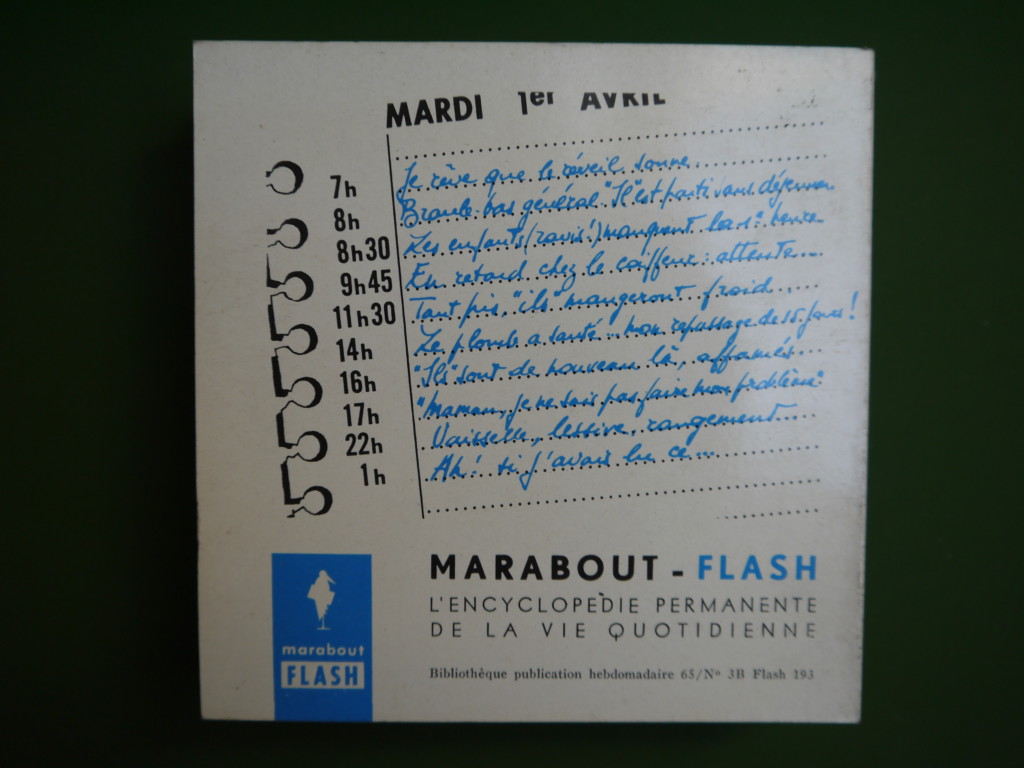 MARDI 1er AVRIL
7h Je rêve que le réveil sonne...
8h Branle bas général "Il" est parti sans déjeuner
8h30 Les enfants (ravis!) mangent la
9h45 En retard chez le coiffeur: attente...
11h30 Tant pis, "ils" mangeront froid...
14h Le plomb a sauté... mon repassage de 15 jours!
16h "Ils" sont de nouveau là, affamés...
17h "Maman, je ne sais pas faire mon problème"
22h Vaisselle, lessive, rangement...
1h Ah! si j'avais lu ce...
MARABOUT - FLASH
L'ENCYCLOPÈDIE PERMANENTE
DE LA VIE QUOTIDIENNE
Bibliothèque publication hebdomadaire 65/Nº 3B Flash 193
marabout
FLASH